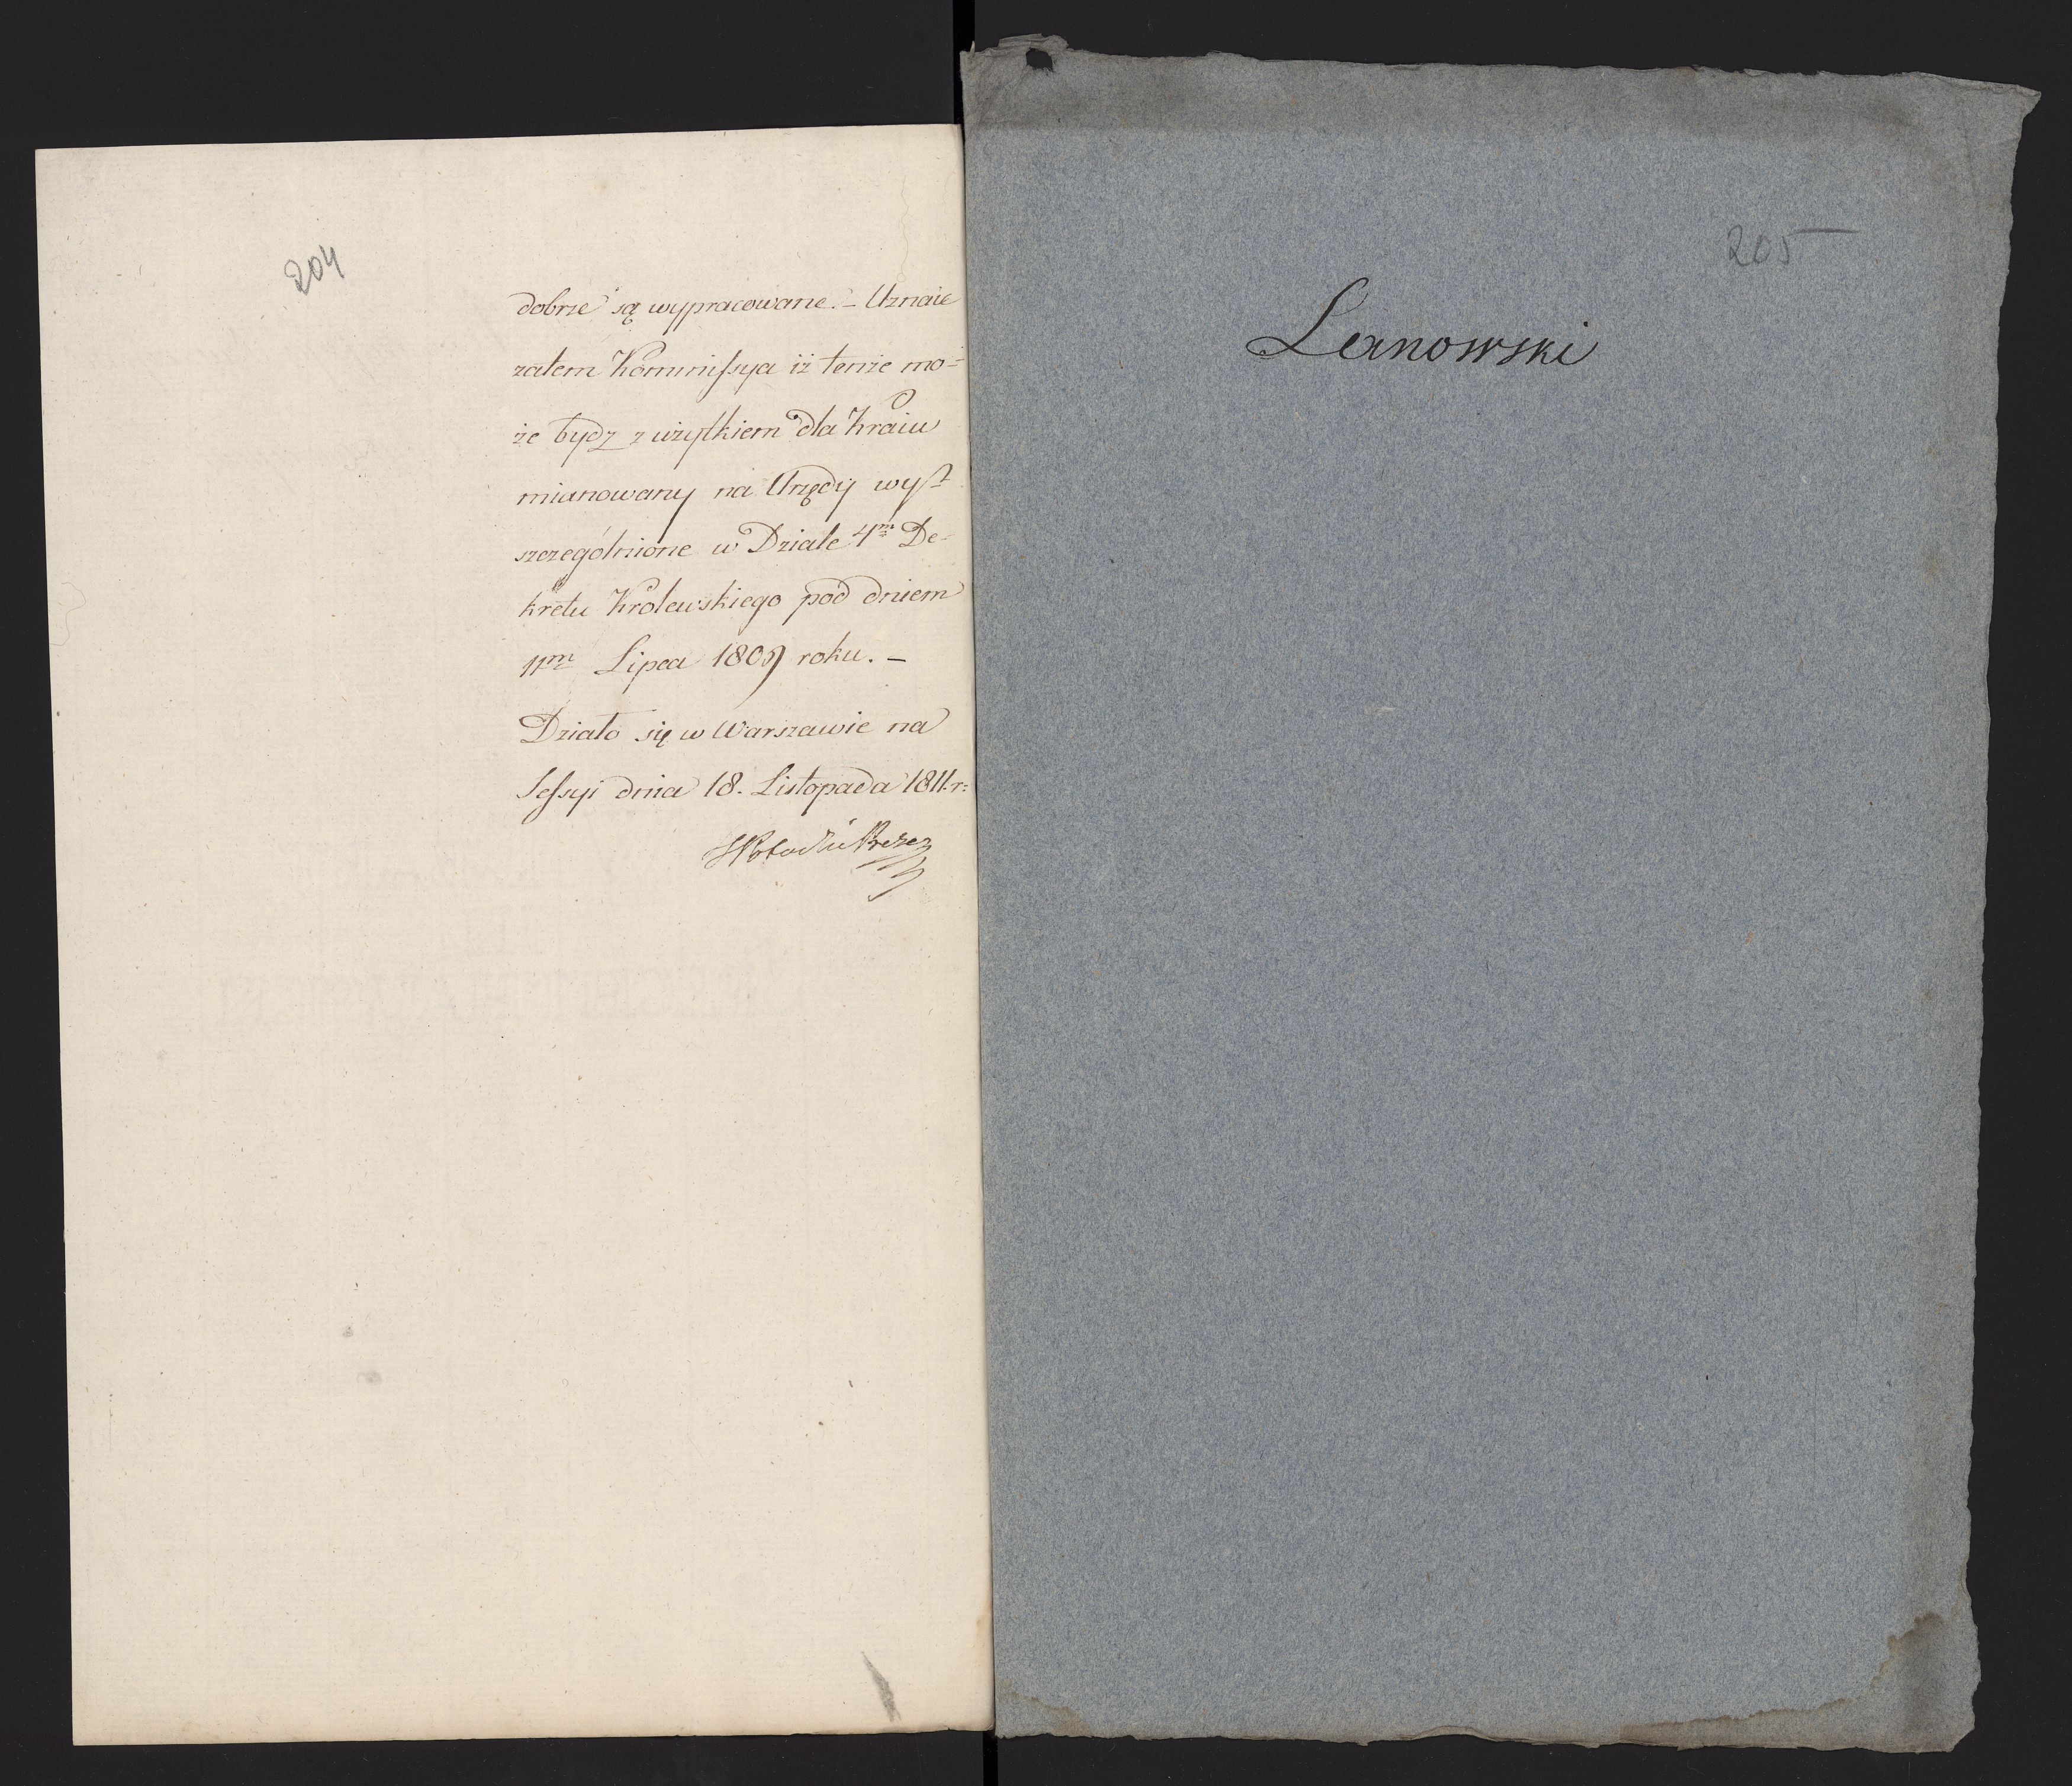 204
dobrze są wypracowane. – Uznaie
zatem Kommissya iż tenże mo=
że bydz z użytkiem dla Kraiu
mianowany na Urzędy wy=
szczególnione w Dziale 4m De=
kretu Krolewskiego pod dniem
11m Lipca 1809 roku. –
Działo się w Warszawie na
Sessyi dnia 18. Listopada 1811. r:
205
Lanowski